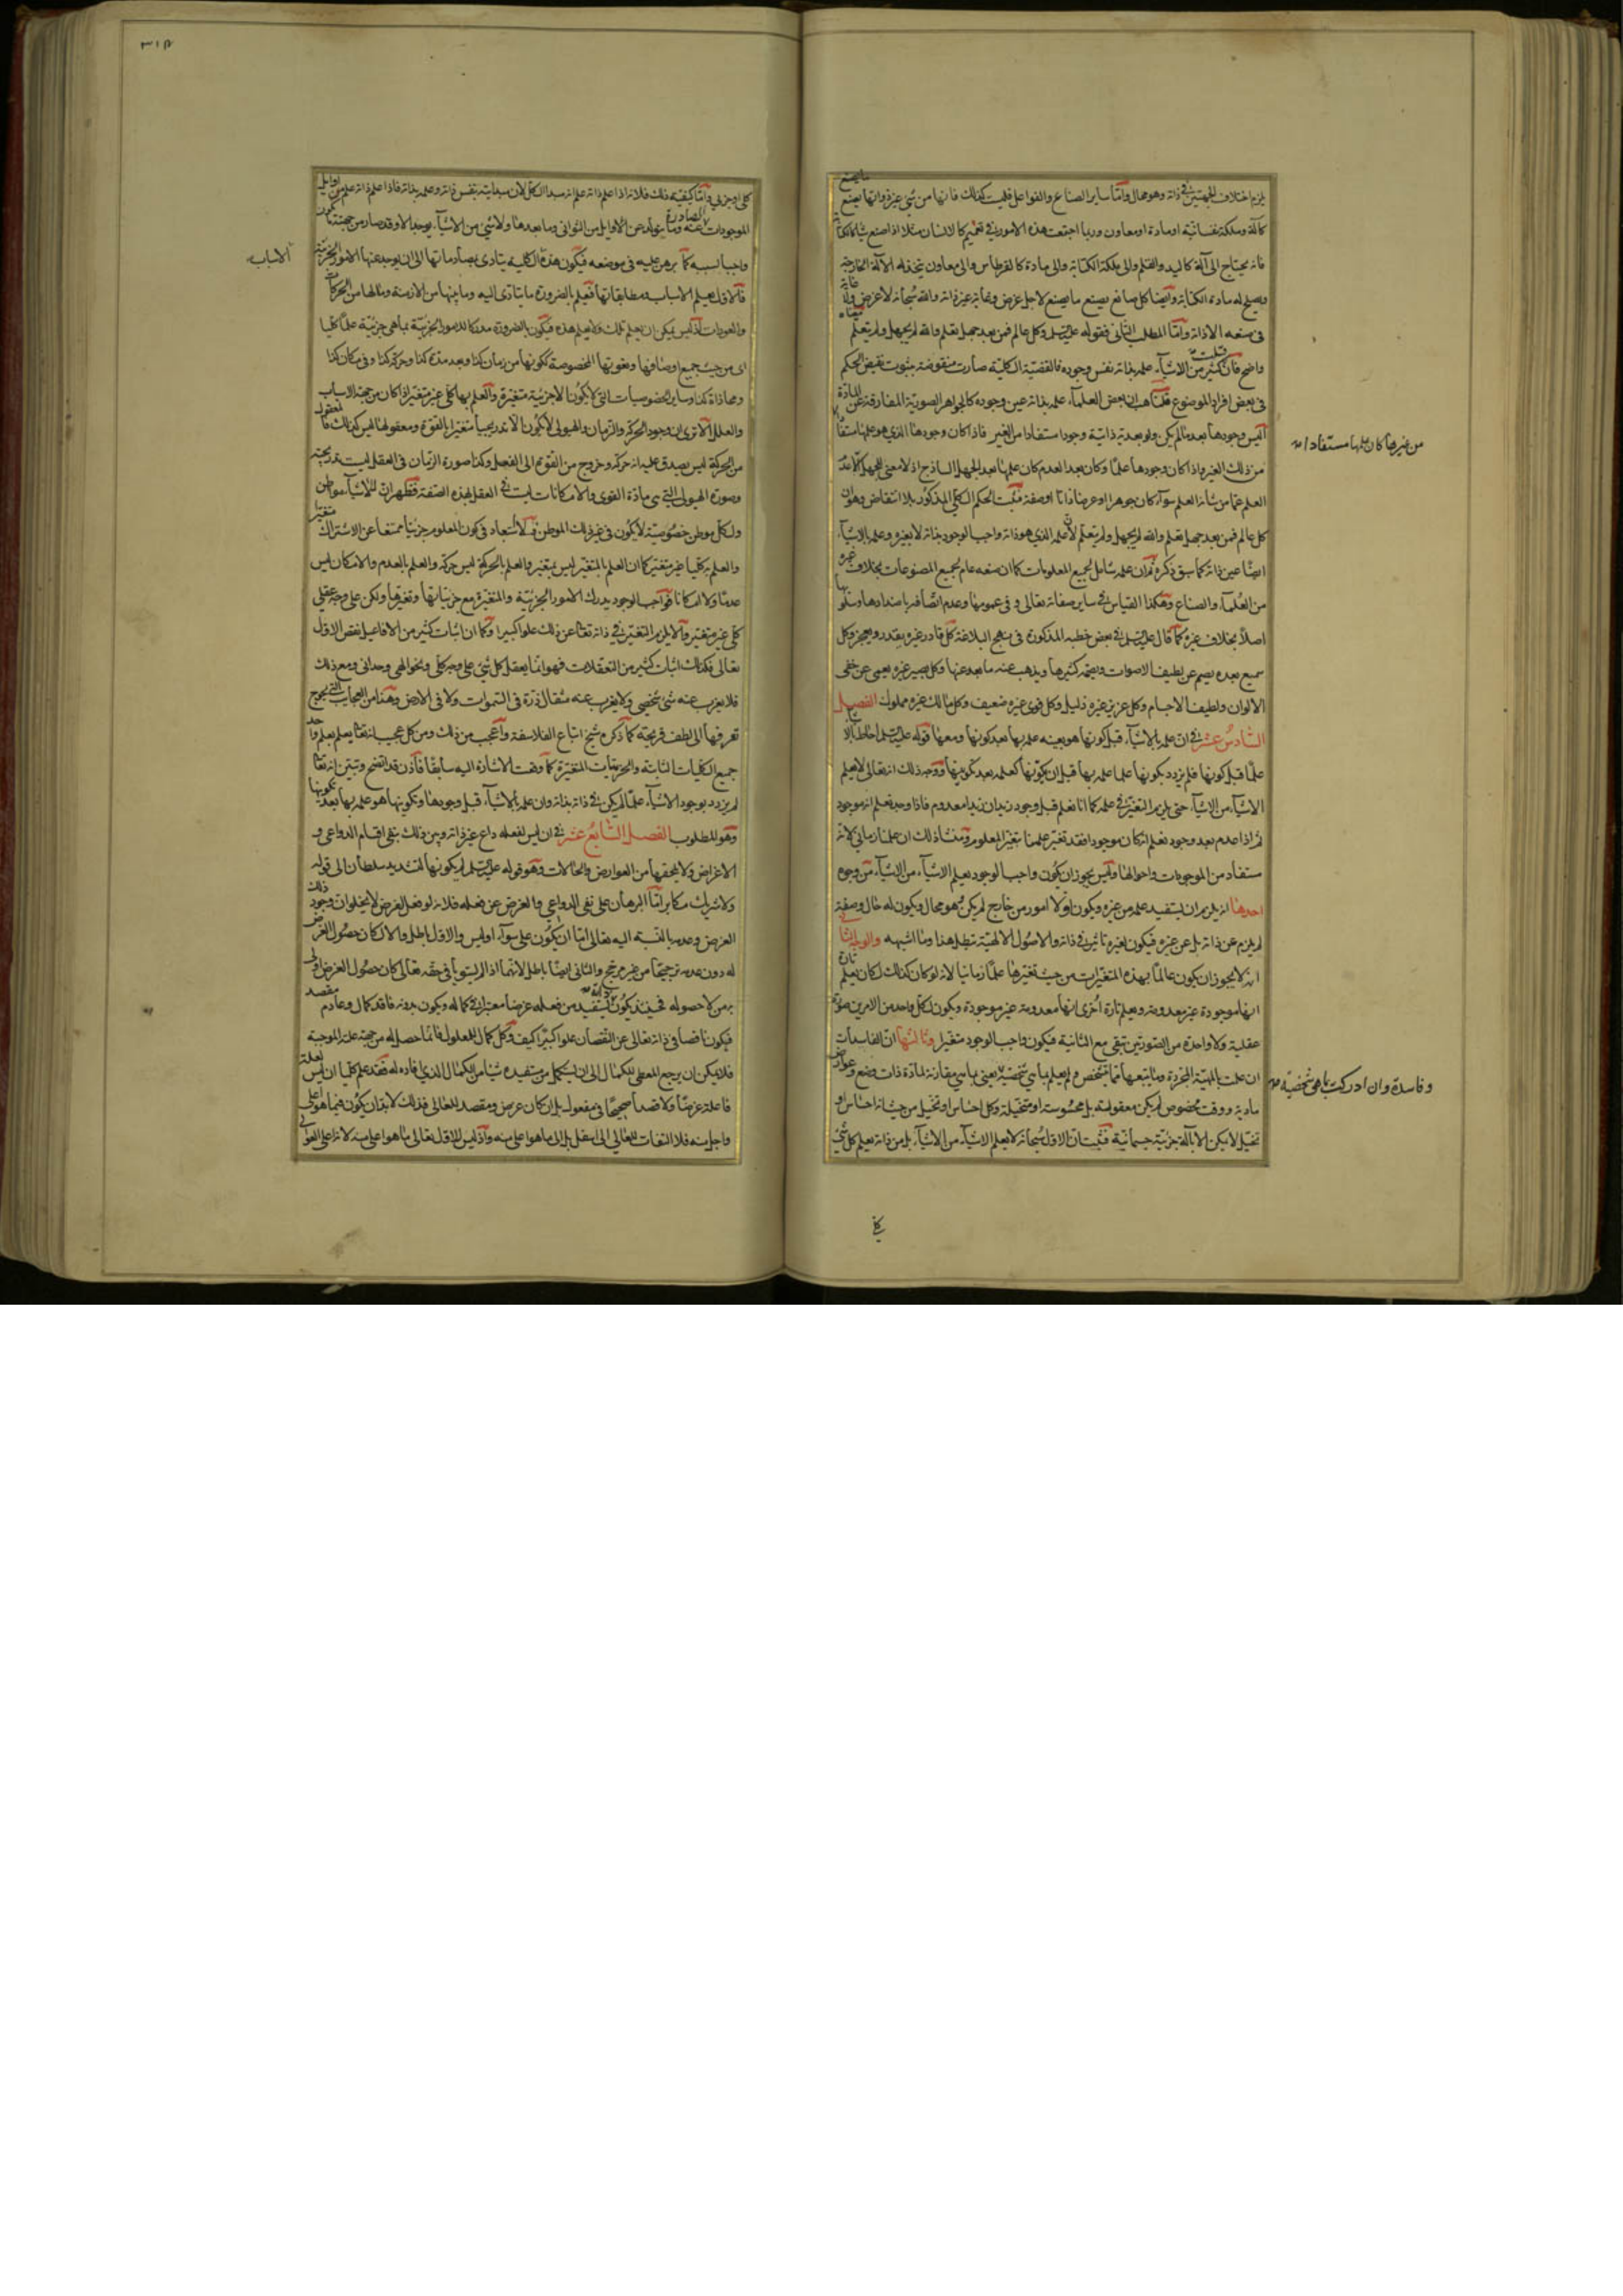 يلزم اختلاف الجهتين في ذاته وهو محال واما ساير الصناع والفواعل فليست كذلك فانها من شئ غيره وانها يصنع ما يصنع
كآلة وملكة نفسانية او مادة او معاون وربما اجتمعت هذه الامور في تتميم كالانسان مثلا اذا صنع شيئا كالكتابة
فانه يحتاج الى آلة كاليد والقلم والى ملكة الكتابة والى مادة كالقرطاس والى معاون يتخذ له الآلة الخارجة
ويصلح له مادة الكتابة وايضا كل صانع يصنع ما يصنع لاجل غرض وغاية غير ذاته والله سبحانه لا غرض ولا غاية
في صنعه الا ذاته واما المطلب الثاني فقوله عليه السلم وكل عالم فمن بعد جهل تعلم والله لم يجهل ولم يتعلم معناه
واضح فان قلت كثير من الاشياء علمه بذاته نفس وجوده فالقضية الكلية صارت منقوضة بثبوت نقيض الحكم
في بعض افراد الموضوع قلنا هب ان بعض العلماء علمه بذاته عين وجوده كالجواهر الصورية المفارقة عن المادة
اليس وجودها بعد ما لم يكن ولو بعدية ذاتية وجودا مستفادا من الغير فاذا كان وجودها الذي هو علمها مستفادا
من غيرها كان علمها مستفادا
من ذلك الغير واذا كان وجودها علما وكان بعد العدم كان علمها بعد الجهل الساذج اذ لا معنى للجهل الا عدم
العلم عما من شانه العلم سواء كان جوهرا او عرضا ذاتا او صفة فثبت الحكم الكلي المذكور بلا انتقاض وهو ان
كل عالم فمن بعد جهل تعلم والله لم يجهل ولم يتعلم لان علمه الذي هو ذاته واجب الوجود بذاته لا بغيره وعلمه بالاشياء
ايضا عين ذاته كما سبق ذكره ثم ان علمه شامل لجميع المعلومات كما ان صنعه عام لجميع المصنوعات بخلاف غيره
من العلماء والصناع وهكذا القياس في ساير صفاته تعالى وفي عمومها وعدم اتصافه باضدادها وسلوبها
اصلا بخلاف غيره كما قال عليه السلم في بعض خطبه المذكورة في نهج البلاغة كل قادر غيره يقدر ويعجز وكل
سميع بعده يصم عن لطيف الاصوات ويصمه كثيرها ويذهب عنه ما بعد عنها وكل بصير غيره يعمى عن خفي
الالوان ولطيف الاجسام وكل عزيز غيره ذليل وكل قوي غيره ضعيف وكل مالك غيره مملوك الفصل
السادس عشر في ان علمه بالاشياء قبل كونها هو بعينه علمه بها بعد كونها ومعها قوله عليه السلم احاط بالاشياء
علما قبل كونها فلم يزدد بكونها علما علمه بها قبل ان يكونها كعلمه بعد تكوينها ووجه ذلك انه تعالى لا يعلم
الاشياء من الاشياء حتى يلزم التغير في علمه كما انا نعلم قبل وجود زيد ان زيدا معدوم فاذا وجد نعلم انه موجود
ثم اذا عدم بعد وجوده نعلم انه كان موجودا فقد تغير علمنا بتغير المعلوم ومنشأ ذلك ان علمنا زماني لانه
مستفاد من الموجودات واحوالها وليس يجوز ان يكون واجب الوجود يعلم الاشياء من الاشياء من وجوه
احدها انه يلزم ان يستفيد علمه من غيره ويكون لولا امور من خارج لم يكن هو بحال ويكون له حال وصفة
لم يلزم عن ذاته بل عن غيره فيكون لغيره تاثير في ذاته والاصول الالهية تبطل هذا وما اشبهه
انه لا يجوز ان يكون عالما بهذه المتغيرات من حيث تغيرها علما زمانيا لانه لو كان كذلك لكان يعلم تارة
انها موجودة غير معدومة ويعلم تارة اخرى انها معدومة غير موجودة ويكون لكل واحد من الامرين صورة
عقلية ولا واحدة من الصورتين تبقى مع الثانية فيكون واجب الوجود متغيرا وثالثها ان الفاسدات
ان علمت بالمهية المجردة وما يتبعها مما يشخص ولم يعلم بما هي شخصية يعني بما هي مقارنة لمادة ذات وضع وعوارض
وفاسدة وان ادركت بما هي شخصية
مادية ووقت مخصوص لم يكن معقولة بل محسوسة او متخيلة وكل احساس او تخيل من حيث انه احساس او
تخيل لا يمكن الا بآلة جزئية جسمانية فثبت ان الاول سبحانه لا يعلم الاشياء من الاشياء بل من ذاته يعلم كل شئ
كلي او جزئي واما كيفية ذلك فلانه اذا علم ذاته علم انه مبدا الكل لان مبدايته نفس ذاته وعلمه بذاته فاذا علم ذاته علم من اوايل
الموجودات الصادرة عنه وما يتولد عن الاوايل من الثواني وما بعدها ولا شئ من الاشياء يوجد الا وقد صار من جهته
واجبا بسببه كما برهن عليه في موضعه فيكون هذه الكلية يتادى بمصادماتها الى ان يوجد عنها الامور الجزئية
الاسباب
فالاول يعلم الاسباب ومطابقاتها فيعلم بالضرورة ما يتادى اليه وما بينها من الازمنة وما لها من الحركات
والعودات اذ ليس يمكن ان يعلم تلك ولا يعلم هذه فيكون بالضرورة مدركا للامور الجزئية بما هي جزئية علما كليا
اي من حيث جميع اوصافها ونعوتها المخصوصة ككونها من زمان كذا وبعد مدة كذا وحركة كذا وفي مكان كذا
ومحاذاة كذا وساير الخصوصيات التي لا يكون الا جزئية متغيرة والعلم بها كلي غير متغير اذا كان من جهة الاسباب
والعلل الا ترى ان وجود الحركة والزمان والهيولى لا يكون الا تدريجيا متغيرا بالقوة ومعقولها ليس كذلك
من الحركة ليس يصدق عليه انه حركة وخروج من القوة الى الفعل وكذا صورة الزمان في العقل ليست تدريجية
وصورة الهيولى التي هي مادة القوى والامكانات ليست في العقل بهذه الصفة فظهر ان للاشياء مواطن
ولكل موطن خصوصية لا يكون في غير ذلك الموطن فلا استبعاد في كون المعلوم جزئيا ممتنعا عن الاشتراك متغيرا
والعلم به كليا غير متغير كما ان العلم بالمتغير ليس بمتغير والعلم بالحركة ليس حركة والعلم بالعدم والامكان ليس
عدما ولا امكانا فواجب الوجود يدرك الامور الجزئية والمتغيرة مع جزئياتها وتغيرها ولكن على وجه عقلي
كلي غير متغير والا لا يلزم التغير في ذاته تعالى عن ذلك علوا كبيرا وكما ان اثبات كثير من الافاعيل نقص للاول
تعالى فكذلك اثبات كثير من التعقلات فهو انما يعقل كل شئ على وجه كلي ونحو الهي وحداني ومع ذلك
فلا يعزب عنه شئ شخصي ولا يعزب عنه مثقال ذرة في السموات ولا في الارض وهذا من العجايب التي يحوج
تعرفها الى لطف قريحة كما ذكره شيخ اتباع الفلاسفة واعجب من ذلك ومن كل عجيب انه تعالى يعلم بعلم واحد
جميع الكليات الثابتة والجزئيات المتغيرة كما وقعت الاشارة اليه سابقا فاذن قد اتضح وتبين انه تعالى
لم يزدد بوجود الاشياء علما لم يكن في ذاته بذاته وان علمه بالاشياء قبل وجودها وتكوينها هو علمه بها بعد تكوينها
وهو المطلوب الفصل السابع عشر في ان ليس لفعله داع غير ذاته وبين ذلك بنفي اقسام الدواعي و
الاغراض ولا يلحقها من العوارض والحالات وهو قوله عليه السلم لم يكونها لتشديد سلطان الى قوله
ولا شريك مكابر اما البرهان على نفي الدواعي والغرض عن فعله فلانه لو فعل لغرض لا يخلو ان وجود ذلك
الغرض وعدمه بالنسبة اليه تعالى اما ان يكون على سواء او ليس والاول باطل والا لكان حصول الغرض
له دون عدمه ترجيحا من غير مرجح والثاني ايضا باطل لانهما اذا لم يستويا في حقه تعالى كان حصول الغرض اولى
به من لا حصوله فحينئذ يكون ذاته يستفيد من فعله غرضا معتبرا في كماله ويكون بدونه فاقد كمال وعادم مقصد
فيكون ناقصا في ذاته تعالى عن النقصان علوا كبيرا كيف وكل كمال للمعلول فانما حصل له من جهة علته الموجبة
فلا يمكن ان يرجع المعطي للكمال الى ان يستكمل من مستفيده شيئا من الكمال الذي افاده له فقد علم كليا ان ليس لعلة
فاعلة غرضا ولا قصدا صحيحا في مفعوله بل ان كان غرض ومقصد للعالي فذلك لا بد ان يكون فيما هو اعلى
واجل منه فلا التفات للعالي الى السافل بل الى ما هو اعلى منه واذ ليس للاول تعالى ما هو اعلى منه لانه اعلى العوالي